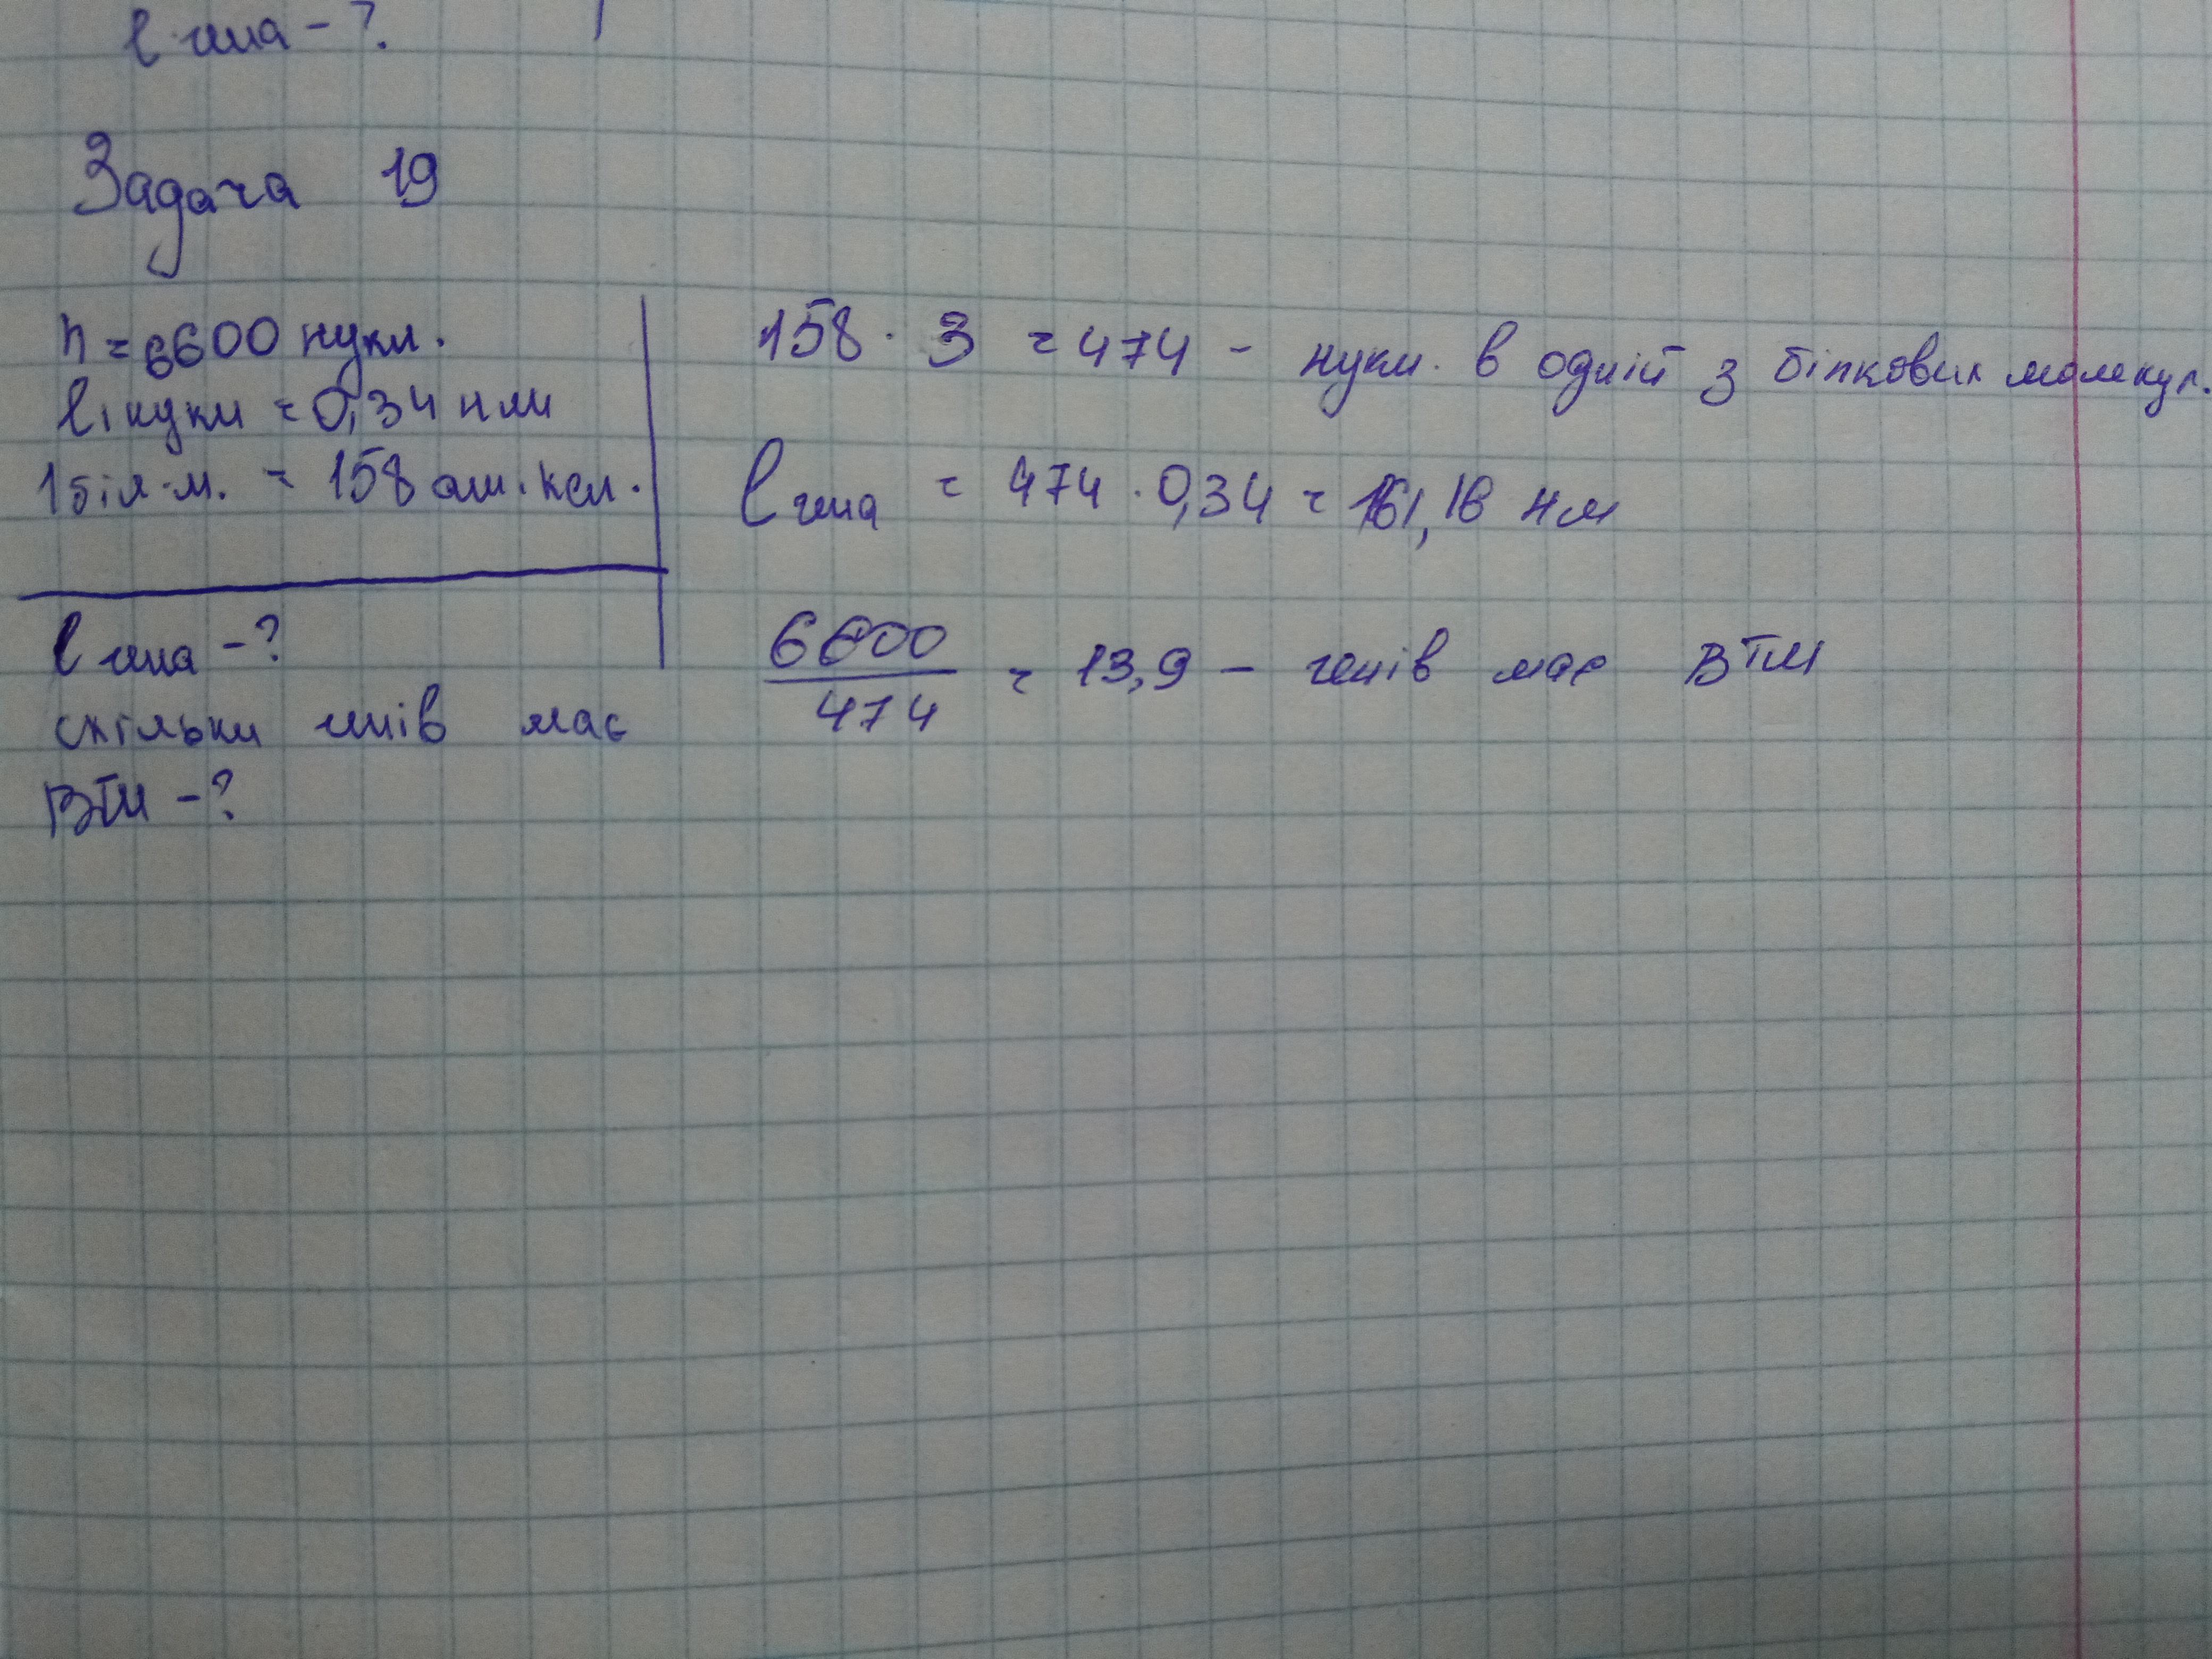 l гена - ?
Задача 19
n = 6600 нукл.
l 1 нукл = 0,34 нм
1 біл. м. = 158 ам. кисл.
l гена - ?
скільки генів має
ВТМ - ?
158 · 3 = 474 - нукл. в одній з білкових молекул.
l гена = 474 · 0,34 = 161,16 нм
6600
474
= 13,9 - генів має ВТМ